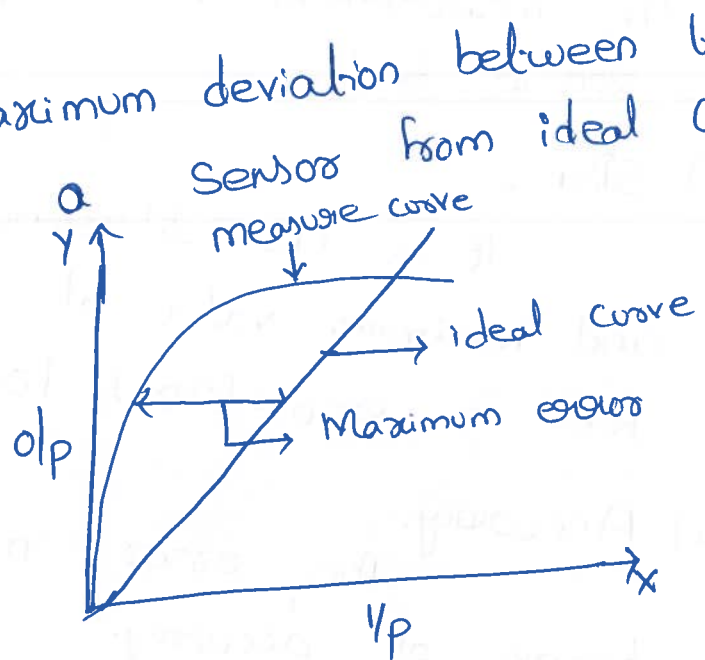 deviation between
a Sensor from ideal
measure curve
Y
ideal curve
Maximum error
o/p
X
I/p